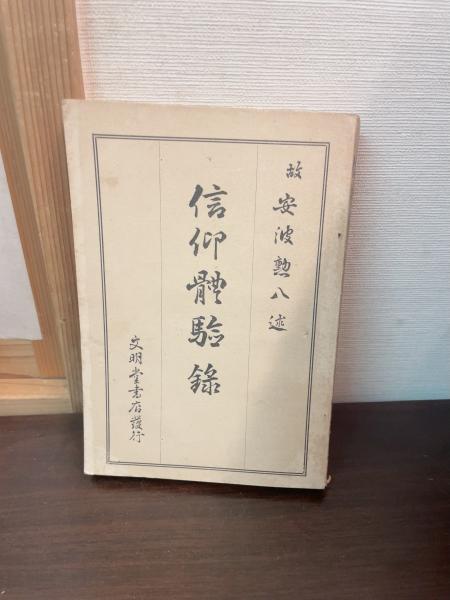 故 安波勲八述
信仰體驗錄
文明堂書店發行